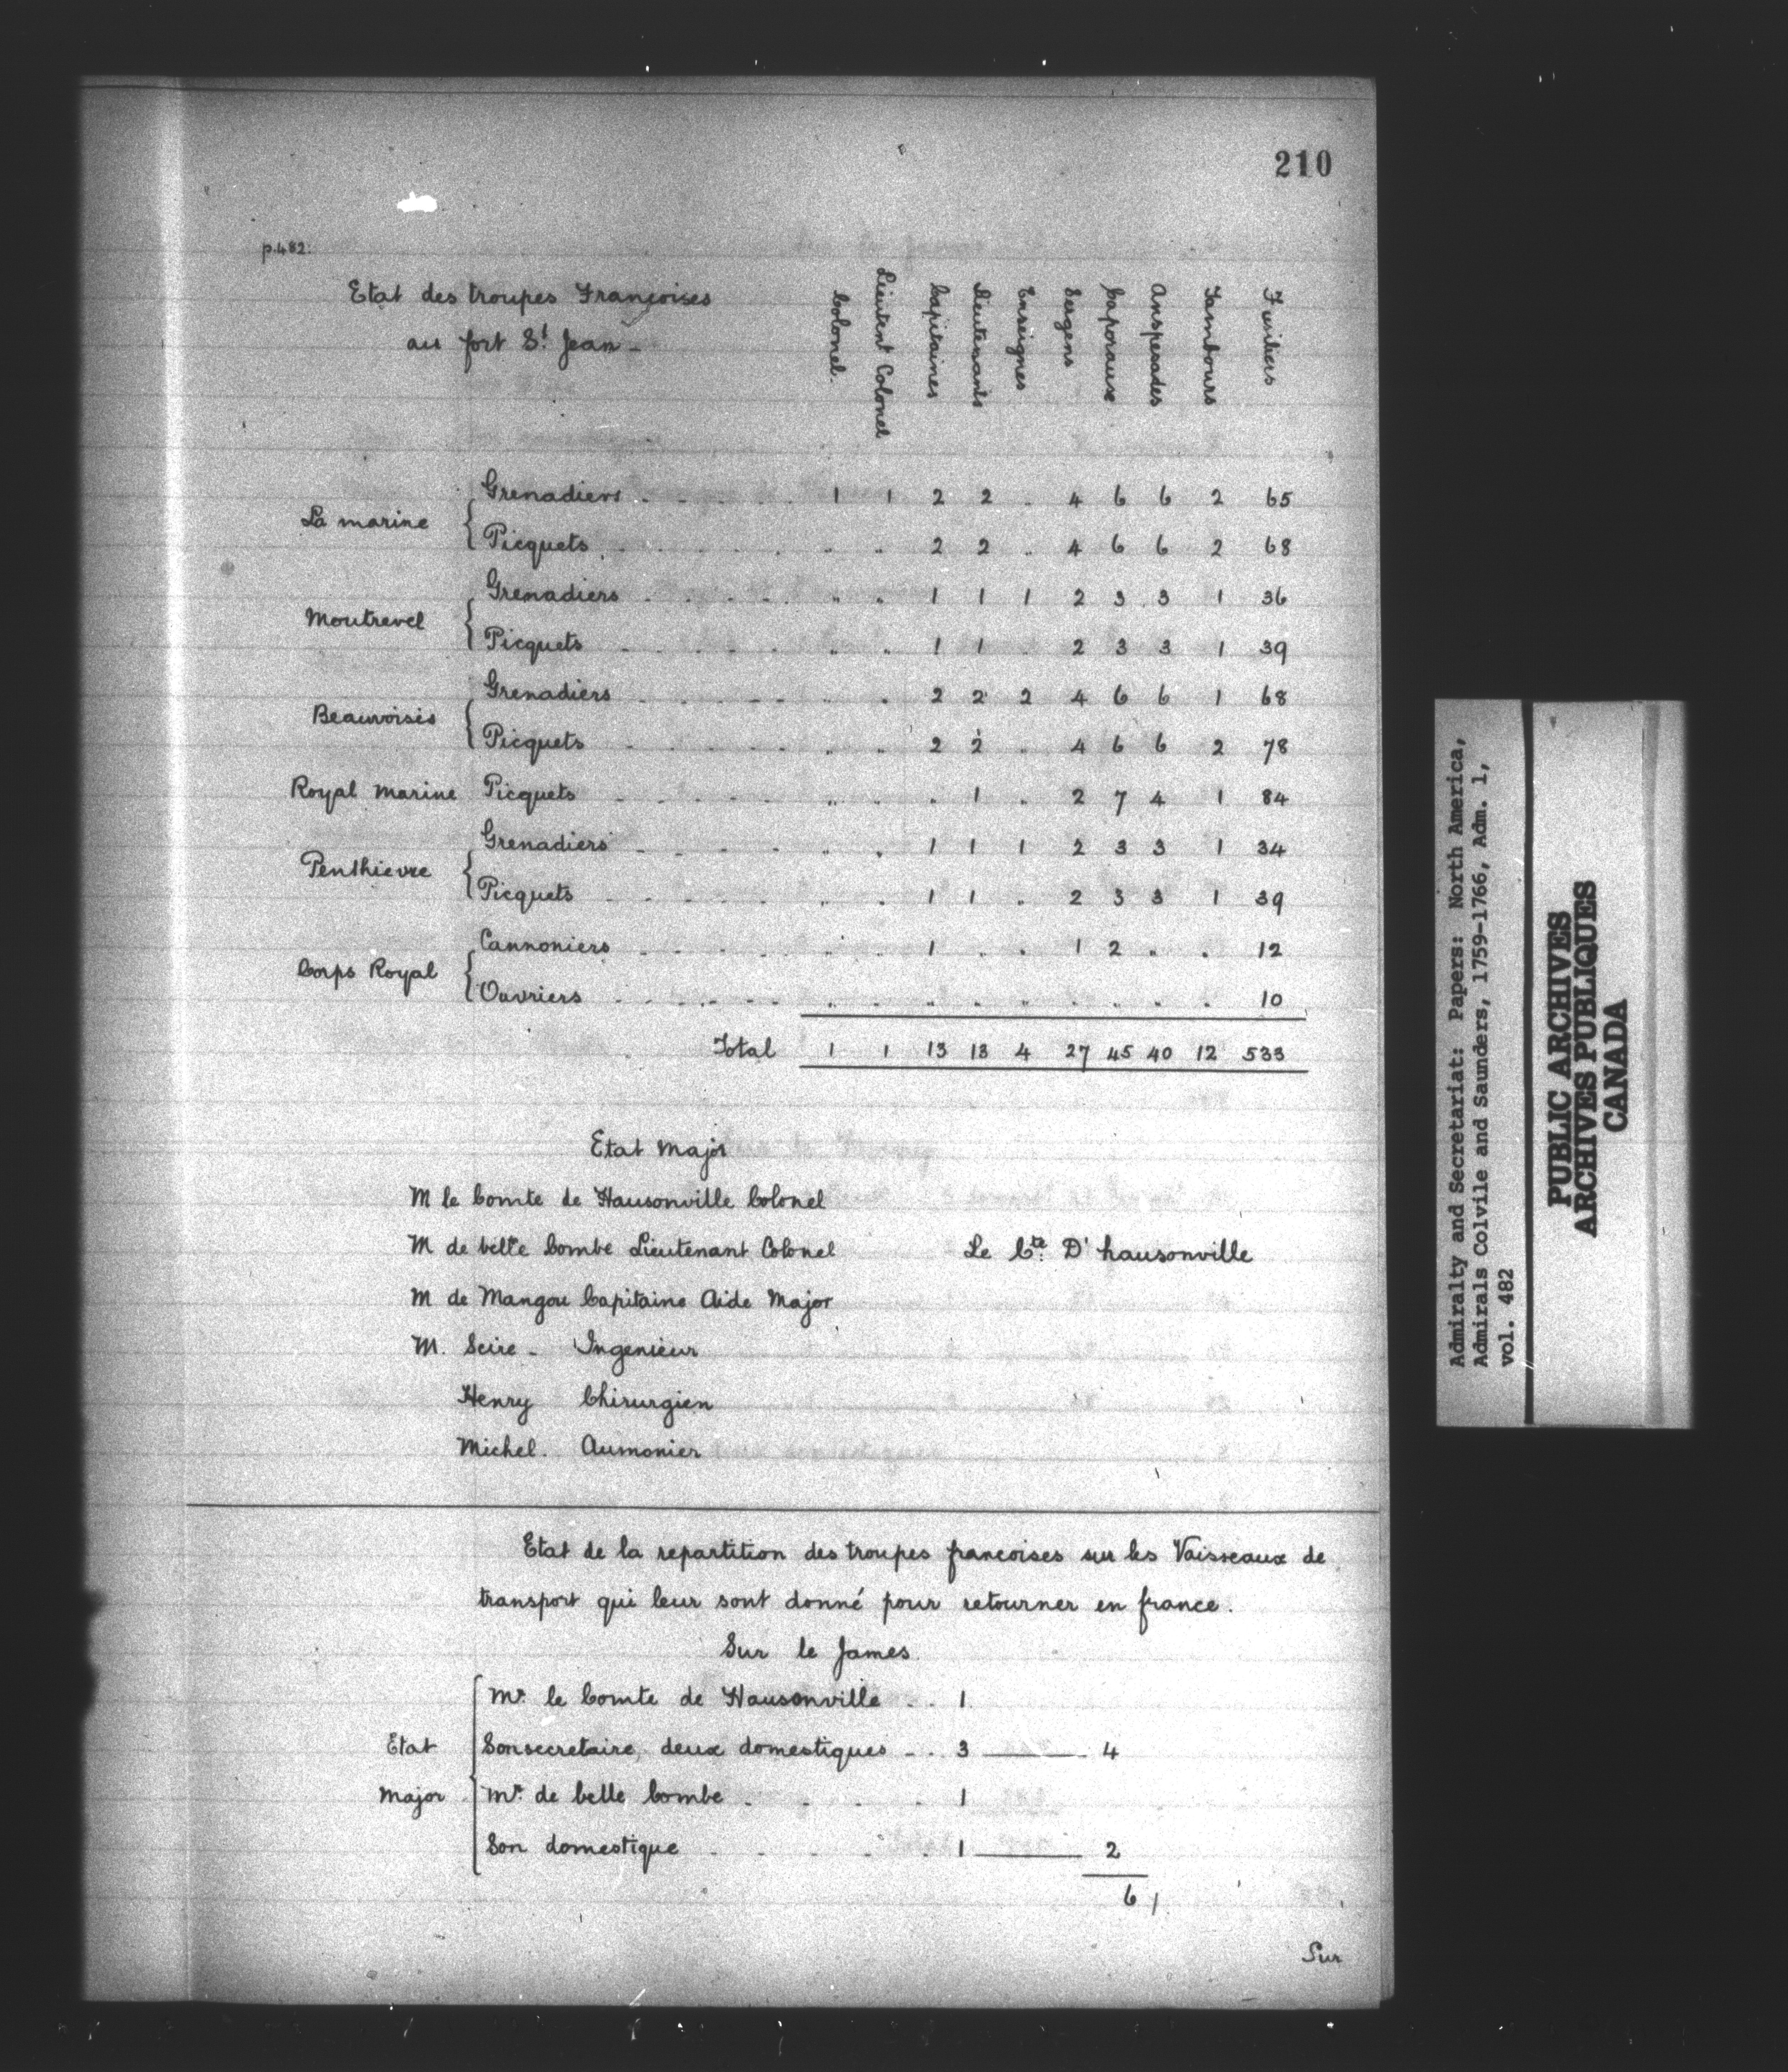 210
p.482.
Etat des troupes Françoises
au fort St Jean -
Colonel. Lieutent Colonel Capitaines Lieutenants Enseignes Sergens Caporaux Anspesades Tambours Fusiliers
La marine { Grenadiers . . . . . 1 1 2 2 . 4 6 6 2 65
Picquets . . . . . " " 2 2 " 4 6 6 2 68
Moutrevel { Grenadiers . . . . . " " 1 1 1 2 3 3 1 36
Picquets . . . . . " " 1 1 . 2 3 3 1 39
Beauvoisis { Grenadiers . . . . . " " 2 2 2 4 6 6 1 68
Picquets . . . . . " " 2 2 . 4 6 6 2 78
Royal Marine Picquets . . . . . " " . 1 . 2 7 4 1 84
Penthievre { Grenadiers . . . . . " " 1 1 1 2 3 3 1 34
Picquets . . . . . " " 1 1 . 2 3 3 1 39
Corps Royal { Cannoniers . . . . . " " 1 . . 1 2 " . 12
Ouvriers . . . . . " " " " " " " " . 10
Total 1 1 13 13 4 27 45 40 12 533
Etat Major
M le Comte de Hausonville Colonel
M de belle Combe Lieutenant Colonel Le Cte. D' hausonville
M de Mangou Capitaine Aide Major
M. Seire - Ingenieur
Henry Chirurgien
Michel. Aumonier
Etat de la repartition des troupes francoises sur les Vaisseaux de
transport qui leur sont donné pour retourner en france.
Sur le James
Mr. le Comte de Hausonville . . 1
Etat Son secretaire, deux domestiques - . 3 ——— 4
Major Mr. de belle Combe . . . . 1
Son domestique . . . . . 1 ——— 2
6
Sur
Admiralty and Secretariat: Papers: North America,
Admirals Colvile and Saunders, 1759-1766, Adm. 1,
vol. 482
PUBLIC ARCHIVES
ARCHIVES PUBLIQUES
CANADA